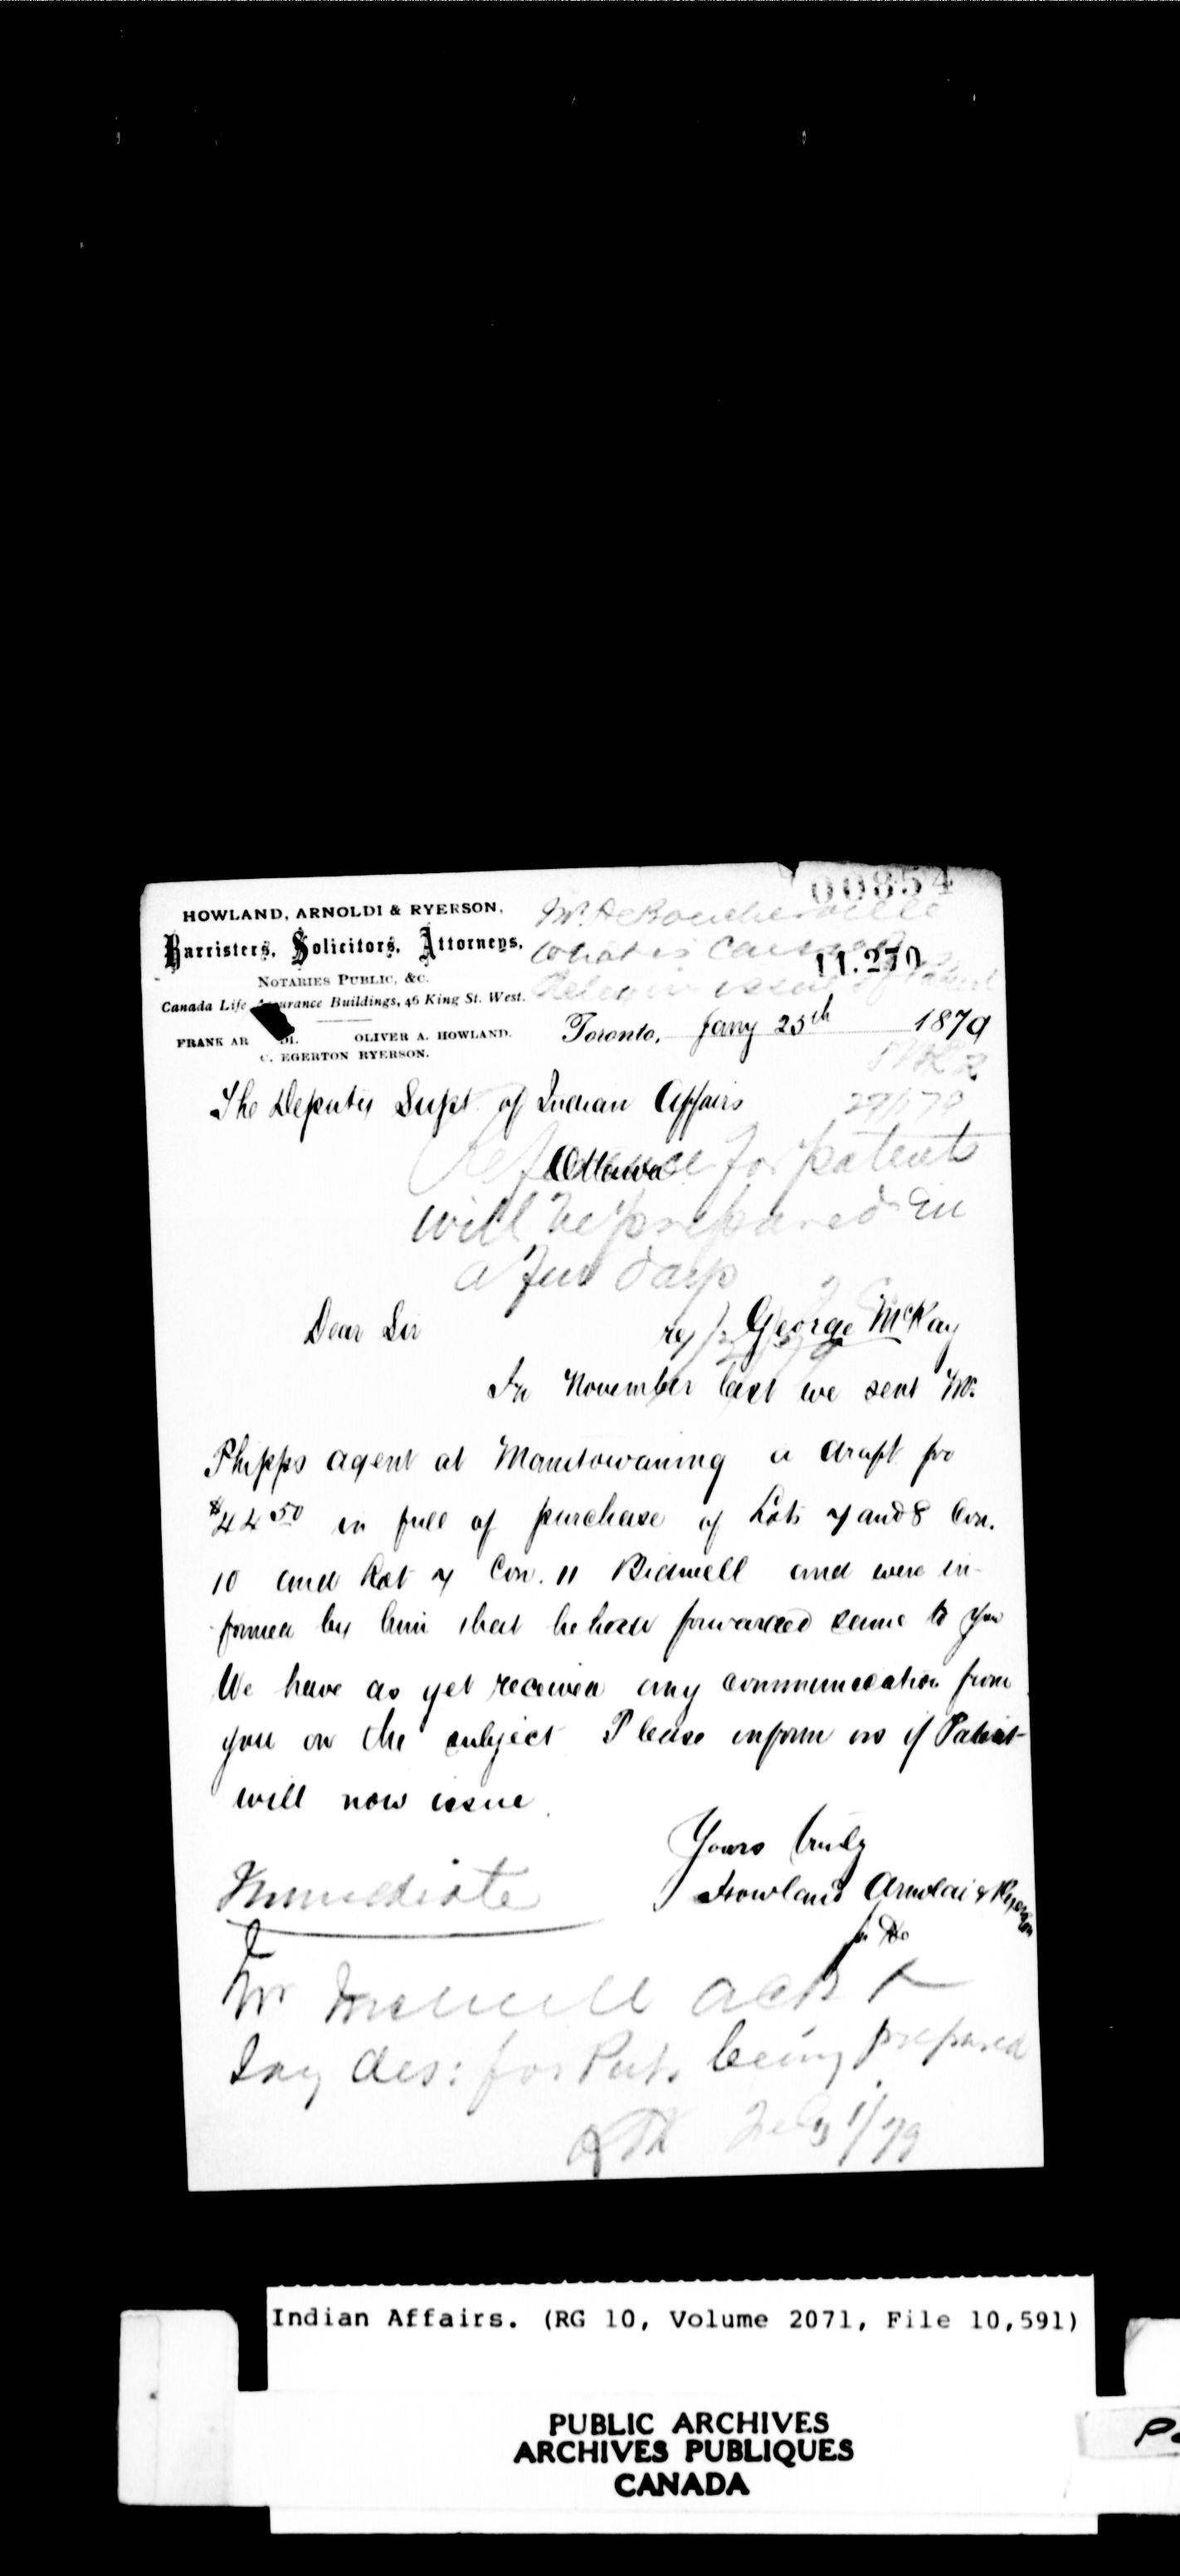 00854
HOWLAND, ARNOLDI & RYERSON,
Barristers, Solicitors, Attorneys,
NOTARIES PUBLIC, &C.
Canada Life Assurance Buildings, 46 King St. West.
FRANK AR DI. OLIVER A. HOWLAND.
C. EGERTON RYERSON.
Mr. DeBoucherville
What is causing
delay in issue of Patent
11.270
Toronto, Jany 25th 1879
29/1/79
The Deputy Supt. of Indian Affairs
Ottawa
Reference for patents
will be prepared in
a few days
Dear Sir
re George McKay
In November last we sent Mr.
Phipps agent at Manitowaning a draft for
$44 50 in full of purchase of Lots 7 and 8 Con.
10 and Lot 7 Con. 11 Bidwell and were in-
formed by him that he had forwarded same to you
We have as yet received any communication from
you on the subject Please inform us if Patent
will now issue
Yours truly
Howland Arnoldi & Ryerson
Immediate
Mr ack &
Say des: for Pats being prepared
Feby 1/79
Indian Affairs. (RG 10, Volume 2071, File 10,591)
PUBLIC ARCHIVES
ARCHIVES PUBLIQUES
CANADA